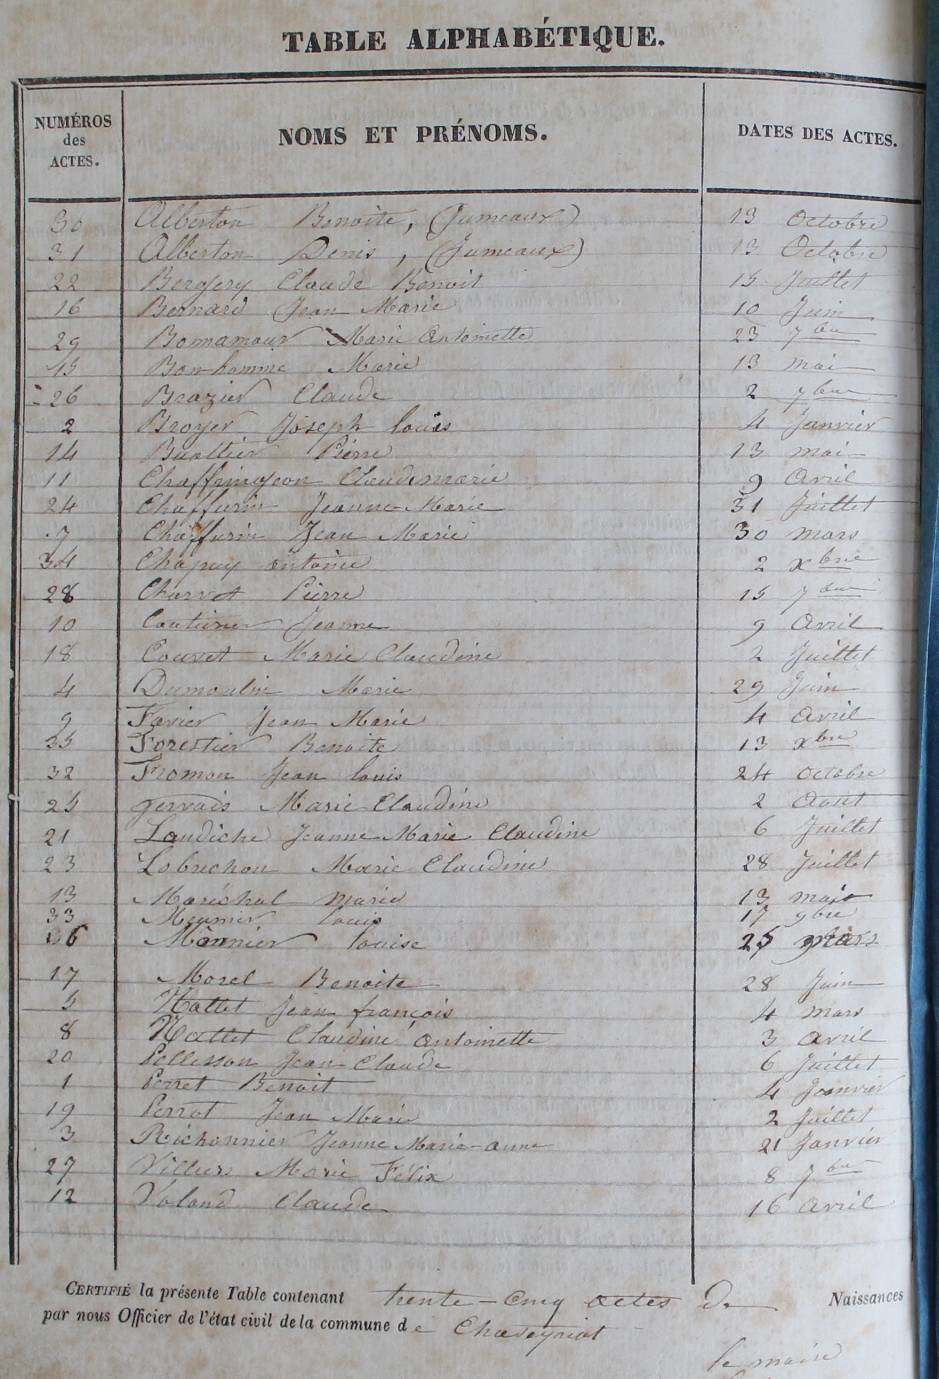 TABLE ALPHABÉTIQUE.
NUMÉROS des ACTES. NOMS ET PRÉNOMS. DATES DES ACTES.
30 Alberton Benoite, (Jumeaux) 13 Octobre
31 Alberton Denis, (Jumeaux) 13 Octobre
22 Bergery Claude Benoit 15 Juillet
16 Bernard Jean Marie 10 Juin
29 Bonnamour Marie Antoinette 23 7bre
15 Bonhomme Marie 13 mai
26 Brazier Claude 2 7bre
2 Broyer Joseph louis 4 Janvier
14 Buattier Pierre 13 mai
11 Chaffringeon Claudemarie 9 Avril
24 Chaffurin Jeanne Marie 31 Juillet
7 Chaffurin Jean Marie 30 mars
34 Chapuy antoine 2 xbre
28 Charvet Pierre 15 7bre
10 Couturier Jeanne 9 Avril
18 Couvet Marie Claudine 2 Juillet
4 Dumoulin Marie 29 Juin
9 Favier Jean Marie 4 avril
35 Forestier Benoite 13 xbre
32 Fromon Jean louis 24 octobre
25 gervais Marie Claudine 2 Aout
21 Laudiche Jeanne Marie Claudine 6 Juillet
23 Lobrechon Marie Claudine 28 Juillet
13 Maréchal marie 13 mai
33 Meunier louis 17 9bre
6 Monnier louise 25 mars
17 Morel Benoite 28 Juin
5 Nallet Jean françois 4 mars
8 Nallet Claudine antoinette 3 avril
20 Pellisson Jean Claude 6 Juillet
1 Perret Benoit 4 Janvier
19 Perrot Jean Marie 2 Juillet
3 Richonnier Jeanne Marie-anne 21 Janvier
27 Villiers Marie Félix 8 7bre
12 Voland Claude 16 avril
CERTIFIÉ la présente Table contenant trente-cinq actes de Naissances
par nous Officier de l'état civil de la commune de Chaveyriat
le maire